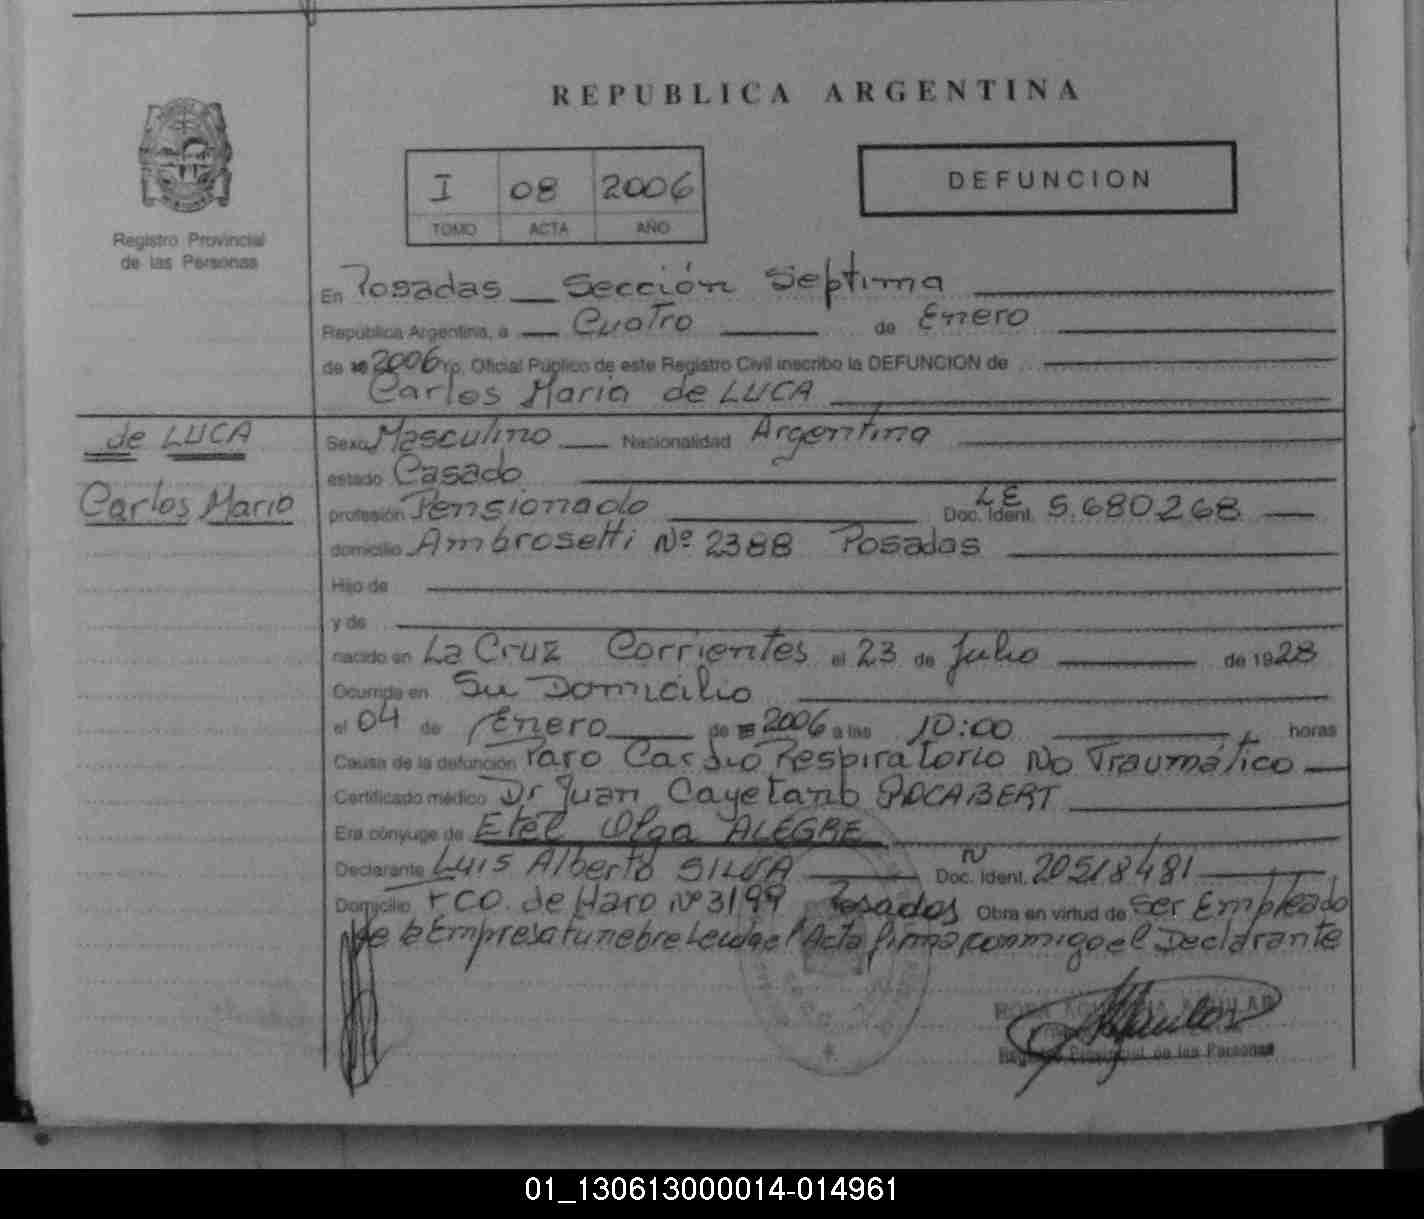 REPUBLICA ARGENTINA
I 08 2006
TOMO ACTA AÑO
DEFUNCION
Registro Provincial
de las Personas
En Posadas Sección Septima
República Argentina, a Cuatro de Enero
de 2006 yo, Oficial Público de este Registro Civil inscribo la DEFUNCION de
Carlos Maria de LUCA
de LUCA
Carlos Mario
Sexo Masculino Nacionalidad Argentina
estado Casado
profesión Pensionado Doc. Ident. L E 5.680.268
domicilio Ambrosetti Nº 2388 Posadas
Hijo de
y de
nacido en La Cruz Corrientes el 23 de Julio de 1928
Ocurrida en Su Domicilio
el 04 de Enero de 2006 a las 10:00 horas
Causa de la defunción Paro Cardio Respiratorio No Traumático
Certificado médico Dr Juan Cayetano ROCABERT
Era cónyuge de Etel Olga ALEGRE
Declarante Luis Alberto SILVA Doc. Ident. 20518481
Domicilio Fco. de Haro Nº 3199 Posadas Obra en virtud de Ser Empleado
de la Empresa funebre Leida el Acta firma conmigo el Declarante
AGUILAR
Registro Provincial de las Personas
01_130613000014-014961